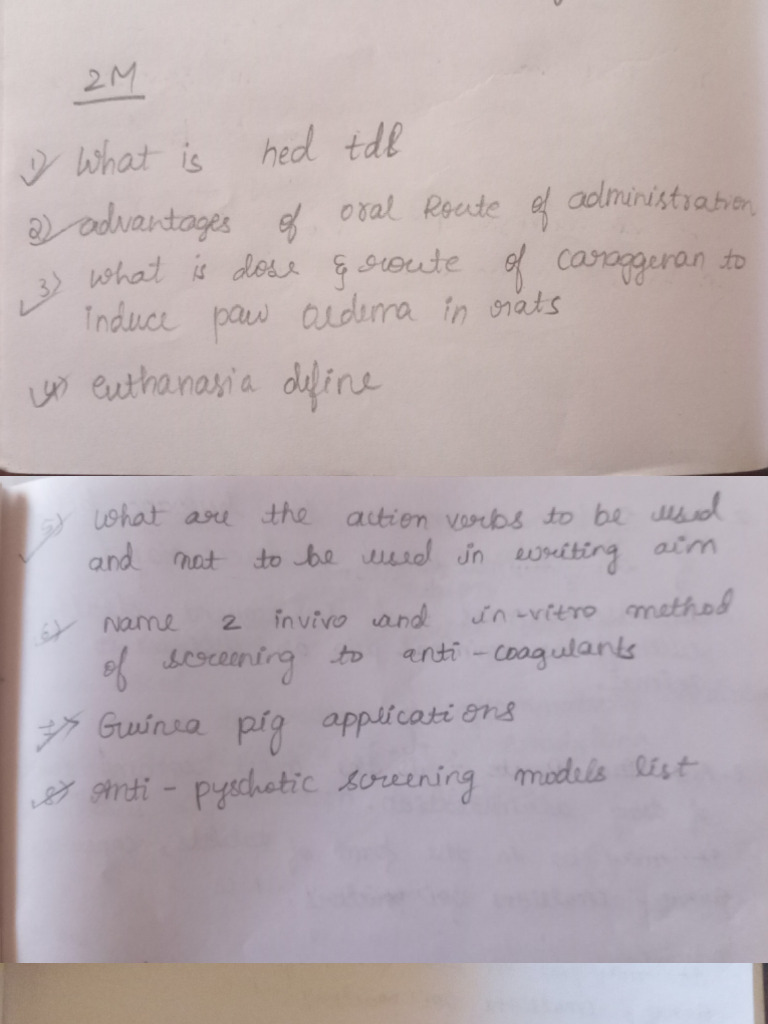 2M
1) What is hed tdb
2) advantages of oral Route of administration
3) what is dose & route of caraggeran to
induce paw oedema in rats
4) euthanasia define
5) what are the action verbs to be used
and not to be used in writing aim
6) Name 2 invivo and in-vitro method
of screening to anti-coagulants
7) Guinea pig applications
8) Anti-pyschotic screening models list